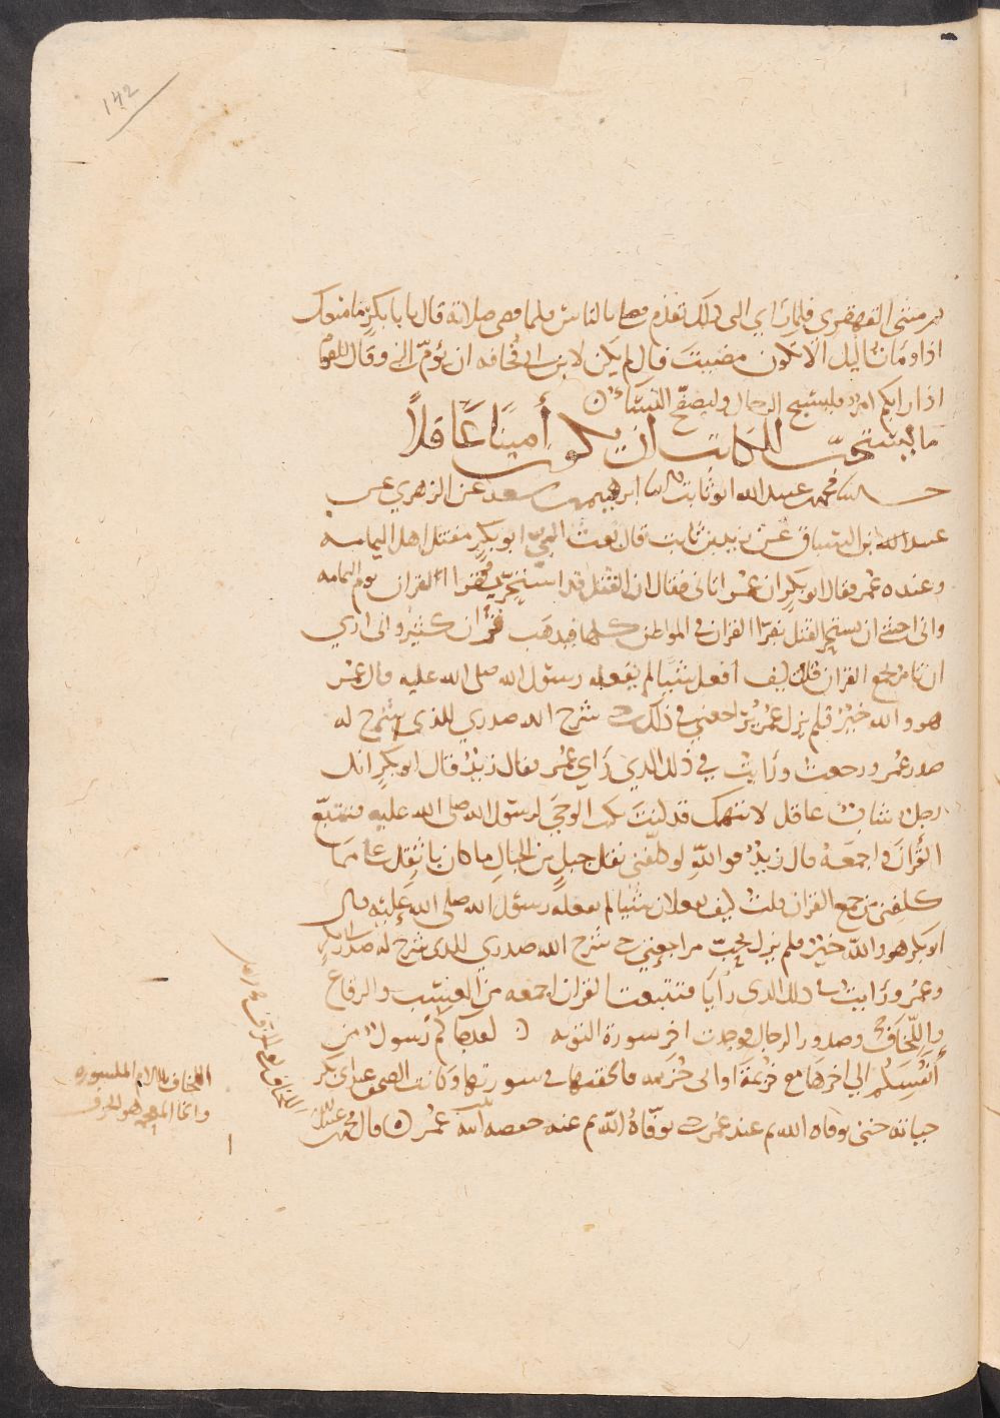 ١٤٢
ثم مشى القهقرى فلما رأى الى ذلك تقدم فصلى بالناس فلما قضى صلاته قال يا با بكر ما منعك
اذ اومأت اليك الا تكون مضيت قال لم يكن لابن ابي قحافه ان يؤمّ النبي وقال للقوم
اذا رابكم امر فليسبح الرجال وليصفّح النسَاء
ما يستحبّ للكاتب ان يكون أمينًا عَاقلاً
حدثنا محمد بن عبيد الله ابو ثابت حدثنا ابرهيم بن سعد عن الزهري عن
عبيد الله بن السباق عن زيد بن ثابت قال بعث اليّ ابو بكرٍ مقتل اهل اليمامه
وعنده عُمر فقال ابو بكر ان عمر اتاني فقال ان القتل قد استحرّ بقرا القران يوم اليمامه
واني اخشى ان يستحر القتل بقرّا القران في المواطن كلها فيذهب قرآن كثير واني ارى
ان تامر بجمع القران قلت كيف افعل شيئًا لم يفعله رسول الله صلى الله عليه قال عمر
هو والله خيرٌ فلم يزل عمُر يُراجعني في ذلك حتى شرح الله صدري للذي شرح له
صدر عمُر ورجعت ورايت في ذلك الذي رَاى عمُر فقال زيدٌ قال ابو بكرٍ انك
رجلٌ شابٌ عاقل لا نتهمك قد كنت تكتب الوحي لرسول الله صلى الله عليه فتتبّع
القُرانَ واجمَعهُ قال زيدٌ فو اللهِ لو كلّفني نقل جبلٍ من الجبالِ ما كان باثقل عليّ ممّا
كلفني من جمع القران قلت كيف تفعلان شيئا لم يفعله رسول الله صلى الله عَليْه قال
ابو بكر هو واللهِ خيرٌ فلم يزل يحبّ مراجعتي حتى شرح الله صدري للذي شرح له صدر ابي بكرٍ
وعمُر ورايت في ذلك الذي رَايَا فتتبعت القران اجمعه من العسُب والرقاع
واللّخاف وصدور الرجال فوجدت اخر سورة التوبه لقد جاكم رسول من
أنفُسِكُم الى اخرهَا مع خزُيمَة او ابي خُزيمه فالحقتها في سورتها وكانت الصحف عند ابي بكر
حياته حتى توفاه الله ثم عند عمُر حتى توفّاهُ اللّهُ ثم عند حفصه ابنة عمُر قال محمد بن عبيد الله
اللخاف يعني الخزف
اللخاف باللام المكسوره
وانخا المعجمه هو الخزف